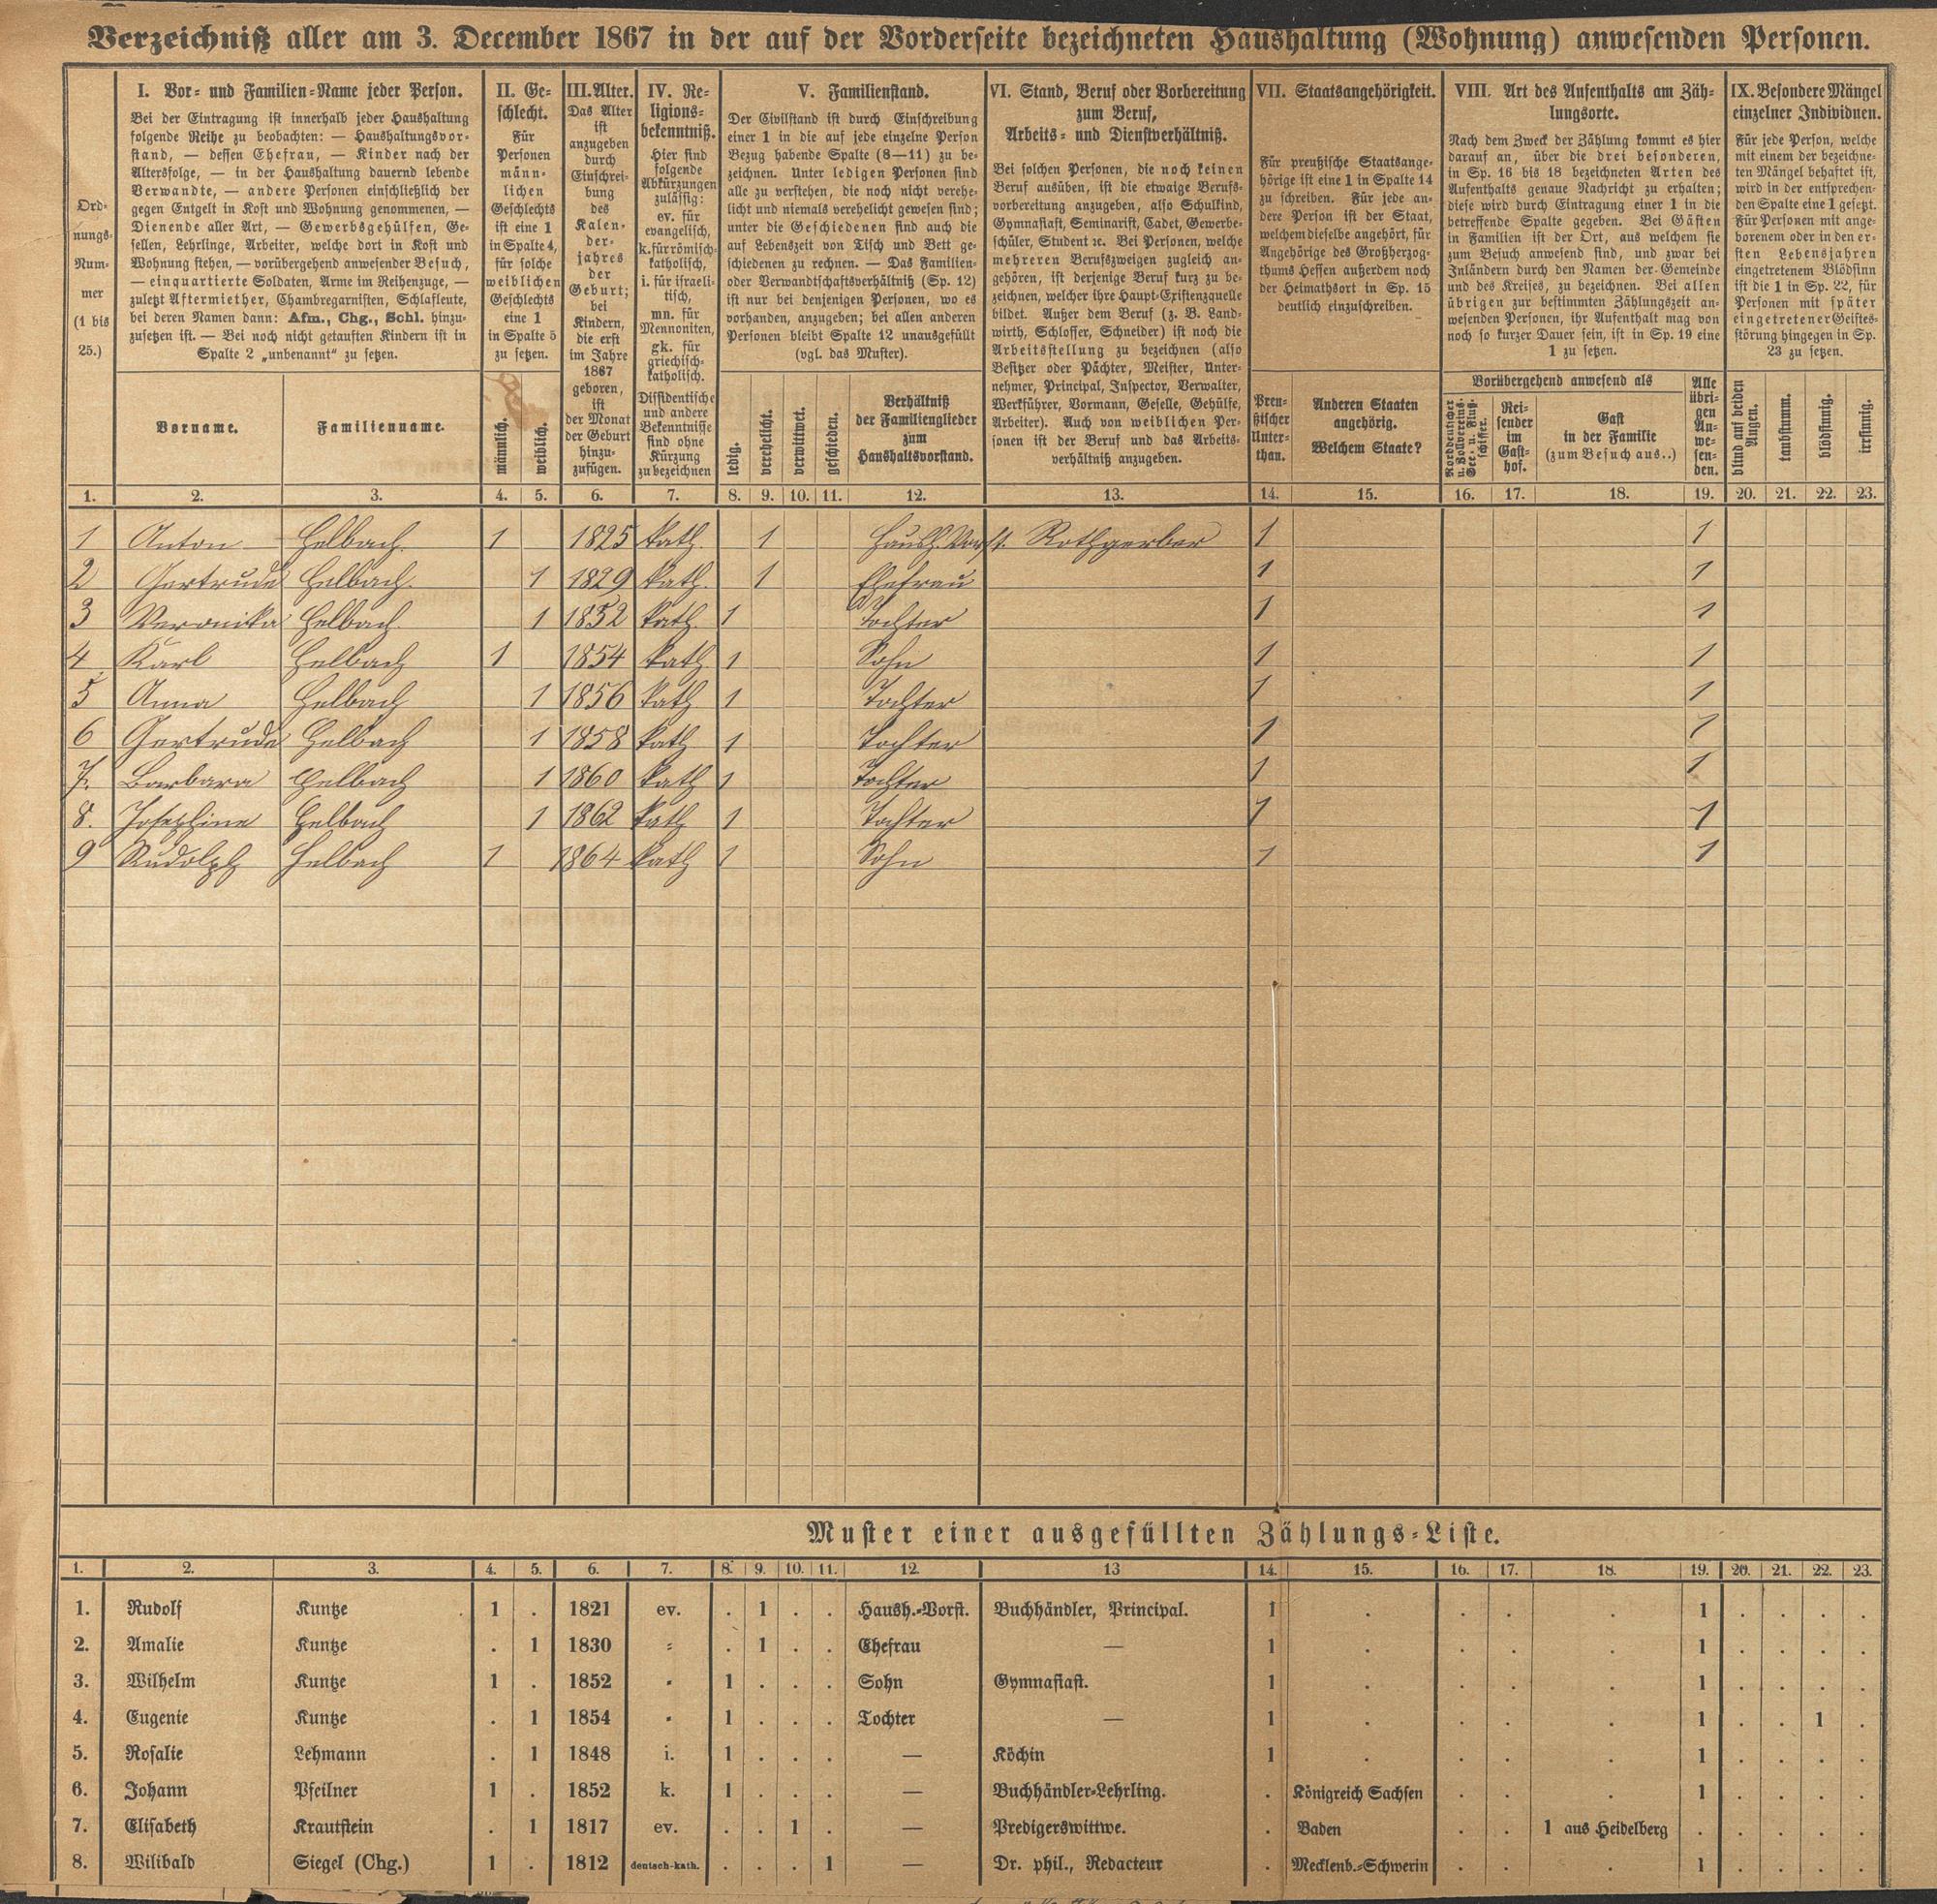 Verzeichniß aller am 3. December 1867 in der auf der Vorderseite bezeichneten Haushaltung (Wohnung) anwesenden Personen.
Ord-
nungs-
Num-
mer
(1 bis
25.)
I. Vor- und Familien-Name jeder Person.
Bei der Eintragung ist innerhalb jeder Haushaltung
folgende Reihe zu beobachten: — Haushaltungsvor-
stand, — dessen Ehefrau, — Kinder nach der
Altersfolge, — in der Haushaltung dauernd lebende
Verwandte, — andere Personen einschließlich der
gegen Entgelt in Kost und Wohnung genommenen, —
Dienende aller Art, — Gewerbsgehülfen, Ge-
sellen, Lehrlinge, Arbeiter, welche dort in Kost und
Wohnung stehen, — vorübergehend anwesender Besuch,
— einquartierte Soldaten, Arme im Reihenzuge, —
zuletzt Aftermiether, Chambregarnisten, Schlafleute,
bei deren Namen dann: Afm., Chg., Schl. hinzu-
zusetzen ist. — Bei noch nicht getauften Kindern ist in
Spalte 2 „unbenannt“ zu setzen.
Vorname.
Familienname.
II. Ge-
schlecht.
Für
Personen
männ-
lichen
Geschlechts
ist eine 1
in Spalte 4,
für solche
weiblichen
Geschlechts
eine 1
in Spalte 5
zu setzen.
männlich.
weiblich.
III. Alter.
Das Alter
ist
anzugeben
durch
Einschrei-
bung
des
Kalen-
der-
jahres
der
Geburt;
bei
Kindern,
die erst
im Jahre
1867
geboren,
ist
der Monat
der Geburt
hinzu-
zufügen.
IV. Re-
ligions-
bekenntniß.
Hier sind
folgende
Abkürzungen
zulässig:
ev. für
evangelisch,
k. für römisch-
katholisch,
i. für israeli-
tisch,
mn. für
Mennoniten,
gk. für
griechisch-
katholisch.
Dissidentische
und andere
Bekenntnisse
sind ohne
Kürzung
zu bezeichnen
V. Familienstand.
Der Civilstand ist durch Einschreibung
einer 1 in die auf jede einzelne Person
Bezug habende Spalte (8—11) zu be-
zeichnen. Unter ledigen Personen sind
alle zu verstehen, die noch nicht verehe-
licht und niemals verehelicht gewesen sind;
unter die Geschiedenen sind auch die
auf Lebenszeit von Tisch und Bett ge-
schiedenen zu rechnen. — Das Familien-
oder Verwandtschaftsverhältniß (Sp. 12)
ist nur bei denjenigen Personen, wo es
vorhanden, anzugeben; bei allen anderen
Personen bleibt Spalte 12 unausgefüllt
(vgl. das Muster).
ledig.
verehelicht.
verwittwet.
geschieden.
Verhältniß
der Familienglieder
zum
Haushaltsvorstand.
VI. Stand, Beruf oder Vorbereitung
zum Beruf,
Arbeits- und Dienstverhältniß.
Bei solchen Personen, die noch keinen
Beruf ausüben, ist die etwaige Berufs-
vorbereitung anzugeben, also Schulkind,
Gymnasiast, Seminarist, Cadet, Gewerbe-
schüler, Student ꝛc. Bei Personen, welche
mehreren Berufszweigen zugleich an-
gehören, ist derjenige Beruf kurz zu be-
zeichnen, welcher ihre Haupt-Existenzquelle
bildet. Außer dem Beruf (z. B. Land-
wirth, Schlosser, Schneider) ist noch die
Arbeitsstellung zu bezeichnen (also
Besitzer oder Pächter, Meister, Unter-
nehmer, Principal, Inspector, Verwalter,
Werkführer, Vormann, Geselle, Gehülfe,
Arbeiter). Auch von weiblichen Per-
sonen ist der Beruf und das Arbeits-
verhältniß anzugeben.
VII. Staatsangehörigkeit.
Für preußische Staatsange-
hörige ist eine 1 in Spalte 14
zu schreiben. Für jede an-
dere Person ist der Staat,
welchem dieselbe angehört, für
Angehörige des Großherzog-
thums Hessen außerdem noch
der Heimathsort in Sp. 15
deutlich einzuschreiben.
Preu-
ßischer
Unter-
than.
Anderen Staaten
angehörig.
Welchem Staate?
VIII. Art des Aufenthalts am Zäh-
lungsorte.
Nach dem Zweck der Zählung kommt es hier
darauf an, über die drei besonderen,
in Sp. 16 bis 18 bezeichneten Arten des
Aufenthalts genaue Nachricht zu erhalten;
diese wird durch Eintragung einer 1 in die
betreffende Spalte gegeben. Bei Gästen
in Familien ist der Ort, aus welchem sie
zum Besuch anwesend sind, und zwar bei
Inländern durch den Namen der Gemeinde
und des Kreises, zu bezeichnen. Bei allen
übrigen zur bestimmten Zählungszeit an-
wesenden Personen, ihr Aufenthalt mag von
noch so kurzer Dauer sein, ist in Sp. 19 eine
1 zu setzen.
Vorübergehend anwesend als
Norddeutscher
u. Zollvereins-
See- u. Fluß-
schiffer.
Rei-
sender
im
Gast-
hof.
Gast
in der Familie
(zum Besuch aus..)
Alle
übri-
gen
An-
we-
sen-
den.
IX. Besondere Mängel
einzelner Individuen.
Für jede Person, welche
mit einem der bezeichne-
ten Mängel behaftet ist,
wird in der entsprechen-
den Spalte eine 1 gesetzt.
Für Personen mit ange-
borenem oder in den er-
sten Lebensjahren
eingetretenem Blödsinn
ist die 1 in Sp. 22, für
Personen mit später
eingetretener Geistes-
störung hingegen in Sp.
23 zu setzen.
blind auf beiden
Augen.
taubstumm.
blödsinnig.
irrsinnig.
1. 2. 3. 4. 5. 6. 7. 8. 9. 10. 11. 12. 13. 14. 15. 16. 17. 18. 19. 20. 21. 22. 23.
1 Anton Helbach 1 1825 kath. 1 Haush. Vorst. Rothgerber 1 1
2 Gertrude Helbach. 1 1829 kath. 1 Ehefrau 1 1
3 Veronika Helbach. 1 1852 kath. 1 Tochter 1 1
4 Karl Helbach 1 1854 kath 1 Sohn 1 1
5 Anna Helbach 1 1856 kath 1 Tochter 1 1
6 Gertrude Helbach 1 1858 kath 1 Tochter 1 1
7. Barbara Helbach 1 1860 kath 1 Tochter 1 1
8. Josephine Helbach 1 1862 kath 1 Tochter 1 1
9 Rudolph Helbach 1 1864 kath 1 Sohn 1 1
Muster einer ausgefüllten Zählungs-Liste.
1. 2. 3. 4. 5. 6. 7. 8. 9. 10. 11. 12. 13 14. 15. 16. 17. 18. 19. 20. 21. 22. 23.
1. Rudolf Kuntze 1 . 1821 ev. . 1 . . Haush.-Vorst. Buchhändler, Principal. 1 . . . . 1 . . . .
2. Amalie Kuntze . 1 1830 „ . 1 . . Ehefrau — 1 . . . . 1 . . . .
3. Wilhelm Kuntze 1 . 1852 „ 1 . . . Sohn Gymnasiast. 1 . . . . 1 . . . .
4. Eugenie Kuntze . 1 1854 „ 1 . . . Tochter — 1 . . . . 1 . . 1 .
5. Rosalie Lehmann . 1 1848 i. 1 . . . — Köchin 1 . . . . 1 . . . .
6. Johann Pfeilner 1 . 1852 k. 1 . . . — Buchhändler-Lehrling. . Königreich Sachsen . . . 1 . . . .
7. Elisabeth Krautstein . 1 1817 ev. . . 1 . — Predigerswittwe. . Baden . . 1 aus Heidelberg . . . . .
8. Wilibald Siegel (Chg.) 1 . 1812 deutsch-kath. . . . 1 — Dr. phil., Redacteur . Mecklenb.-Schwerin . . . 1 . . . .